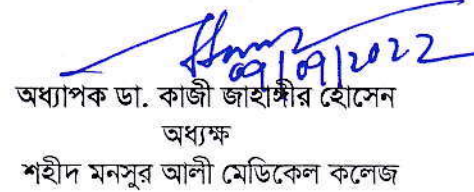 09/09/2022
অধ্যাপক ডা. কাজী জাহাঙ্গীর হোসেন
অধ্যক্ষ
শহীদ মনসুর আলী মেডিকেল কলেজ